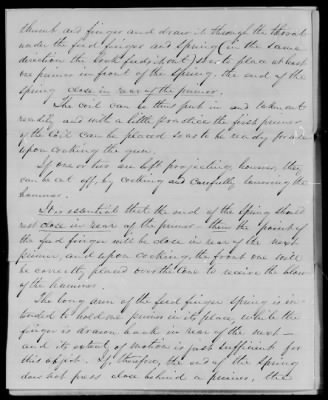 thumb and finger and draw it through the throat
under the feed finger and spring (in the same
direction the lock feeds it out) so as to place at least
one primer in front of the spring. the end of the
spring close in rear of the primer.
The coil can in this put in and taken out
readily and with a little practice the first primer
of the coil can be placed so as to be ready for use
upon cocking the gun.
If one or two are left projecting, however, they
can be cut off, by cocking and carefully lowering the
hammer.
It is essential that the end of the Spring should
rest close in rear of the primer – then the point of
the feed finger will be close in rear of the next
primer, and upon cocking, the front one will
be correctly placed over the Cone to receive the blow
of the hammer.
The long arm of the feed finger spring is in-
tended to hold one primer in its place, while the
finger is drawn back in rear of the next –
and its extent of motion is just sufficient for
this object. If, therefore, the end of the Spring
does not press close behind a primer, the